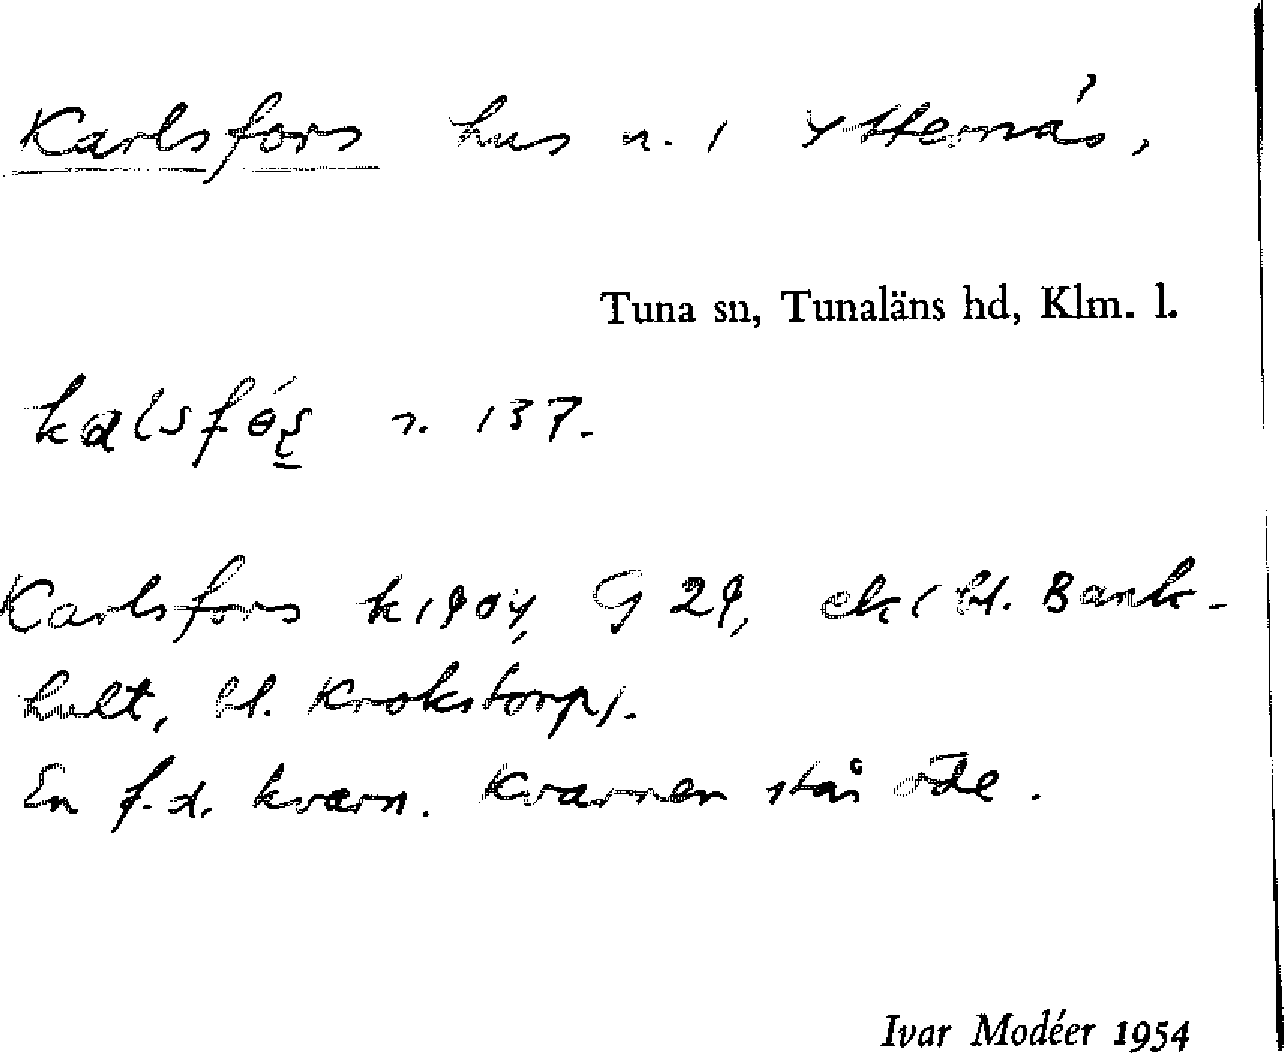 Karlsfors hus n. 1 Ytternäs,
Tuna sn, Tunaläns hd, Klm. l.
n. 137.
Karlsfors k 1904, G 29, ek (bl. Bank-
hult, bl. Krokstorp).
En f.d. kvarn. Kvarnen står öde.
Ivar Modéer 1954